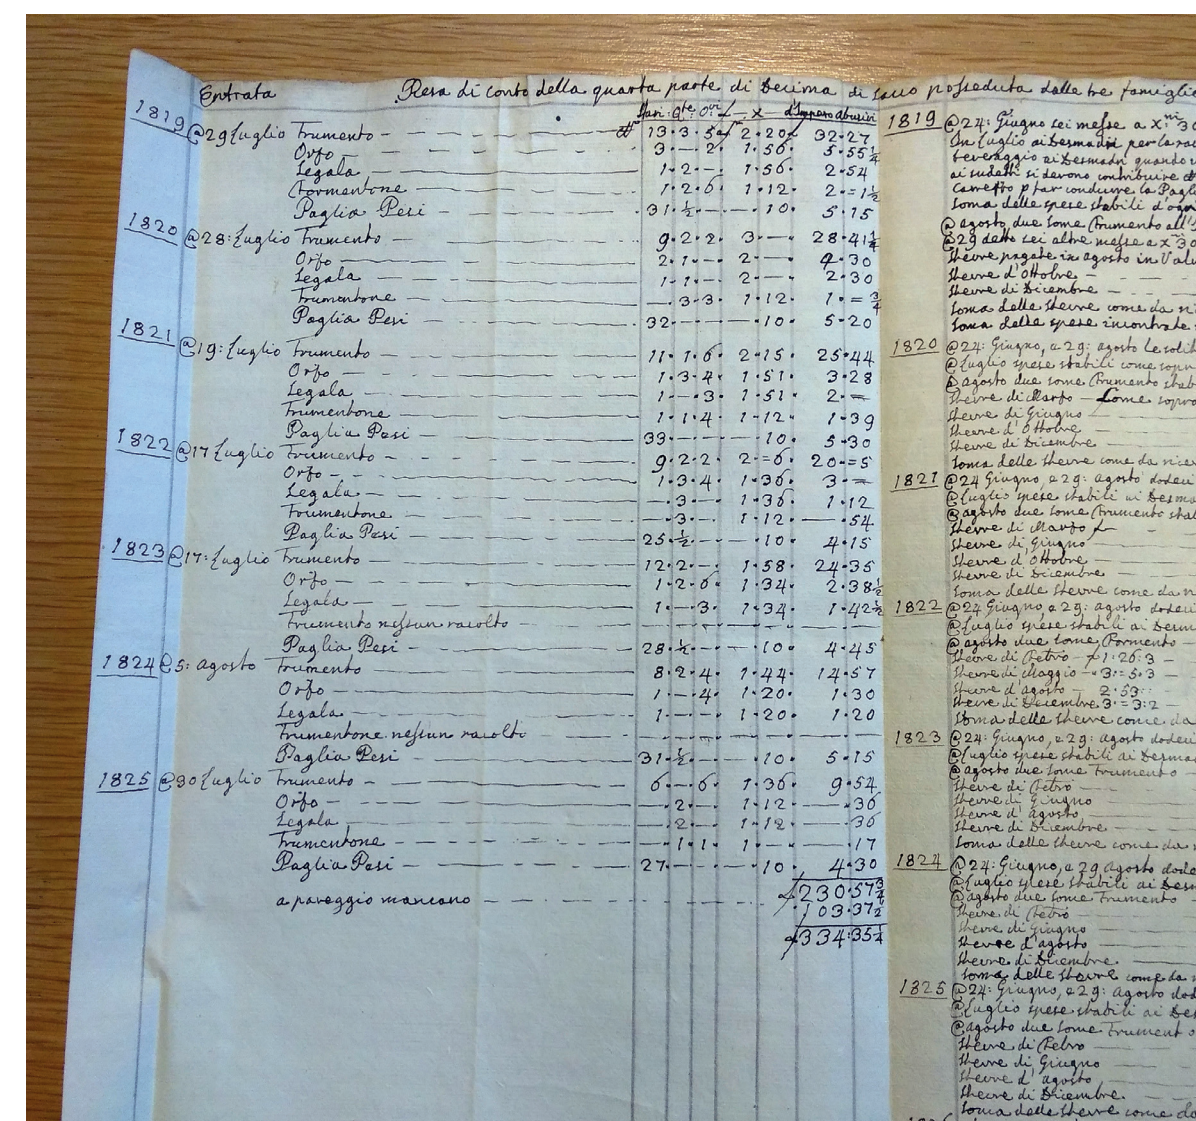 Entrata Resa di conto della quarta parte di Decima di posseduta dalle tre famiglie
1819 @ 29 Luglio Frumento - 13·3·5 2·20· 32·27
Orfo 3·-·2· 1·56· 5·55¼
Legala 1·2·- 1·56· 2·54
Formentone 1·2·6 1·12· 2·=1½
Paglia Pesi - 31·½·- - ·10· 5·15
1820 @ 28: Luglio Frumento - 9·2·2· 3·- 28·41¼
Orfo 2·1·- 2·- 4·30
Legala 1·1·- 2·- 2·30
Frumentone - ·3·3· 1·12· 1·=¾
Paglia Pesi 32· ·10· 5·20
1821 @ 19: Luglio Frumento 11·1·6· 2·15· 25·44
Orfo 1·3·4· 1·51· 3·28
Legala 1·-·3· 1·51 2·=
Frumentone 1·1·4 1·12 1·39
Paglia Pesi - 33· ·10· 5·30
1822 @ 17 Luglio Frumento 9·2·2 2·=6· 20·=5
Orfo 1·3·4 1·36· 3·=
Legala - ·3·- 1·36· 1·12
Frumentone ·3·- 1·12· - ·54
Paglia Pesi - 25·½·- ·10· 4·15
1823 @ 17: Luglio Frumento 12·2·- 1·58· 24·35
Orfo - 1·2·6 1·34· 2·38½
Legala 1·-·3· 1·34 1·42½
Frumento nessun racolto
Paglia Pesi 28·½·- ·10· 4·45
1824 @ 5: agosto Frumento 8·2·4 1·44· 14·57
Orfo 1·-·4· 1·20· 1·30
Legala 1·-·- 1·20· 1·20
Frumentone nessun racolto
Paglia Pesi 31·½·- ·10· 5·15
1825 @ 30 Luglio Frumento 6·-·6· 1·36· 9·54
Orfo - - ·2·- 1·12· - ·36
Legala - ·2·- 1·12· - ·36
Frumentone - ·1·1· 1·- ·17
Paglia Pesi 27· ·10· 4·30
230·57¾
a pareggio mancano 103·37½
334·35¼
1819 @ 24: Giugno sei messe a
In Luglio ai Desmadri per la
beveraggio ai Desmadri quando
ai sudatti si devono contribuire
Carretto p far condurre la Paglia
Soma delle spese stabili
@ agosto due Some Frumento
@ 29 detto sei altre messe a
Stevre pagate in agosto in
Stevre d'Ottobre -
Stevre di Dicembre -
Soma delle Stevre come da
Soma delle spese incontrate
1820 @ 24: Giugno, e 29: agosto le
@ Luglio spese stabili come
@ agosto due Some Frumento
Stevre di Marzo - Come
Stevre di Giugno
Stevre d'Ottobre -
Stevre di Dicembre
Soma delle Stevre come da
1821 @ 24 Giugno, e 29: agosto dodeci
@ Luglio spese stabili ai
@ agosto due Some Frumento
Stevre di Marzo
Stevre di Giugno
Stevre d'Ottobre
Stevre di Dicembre
Soma delle Stevre come da
1822 @ 24 Giugno, e 29: agosto dodeci
@ Luglio spese stabili ai
@ agosto due Some Formento -
Stevre di 1·26·3 -
Stevre di Maggio - 3·=5·3 -
Stevre d'agosto - 2·53··
Stevre di Decembre 3·=3·2 -
Soma delle Stevre come da
1823 @ 24: Giugno, e 29: agosto dodeci
@ Luglio spese stabili ai
@ agosto due Some Frumento -
Stevre di
Stevre di Giugno
Stevre d'agosto
Stevre di Dicembre
Soma delle Stevre come da
1824 @ 24: Giugno, e 29 agosto
@ Luglio spese stabili ai
@ agosto due Some Frumento
Stevre di
Stevre di Giugno
Stevre d'agosto
Stevre di Dicembre
Soma delle Stevre come da
1825 @ 24: Giugno, e 29: agosto
@ Luglio spese stabili ai
@ agosto due Some Frumento
Stevre di
Stevre di Giugno
Stevre d'agosto
Stevre di Dicembre
Soma delle Stevre come